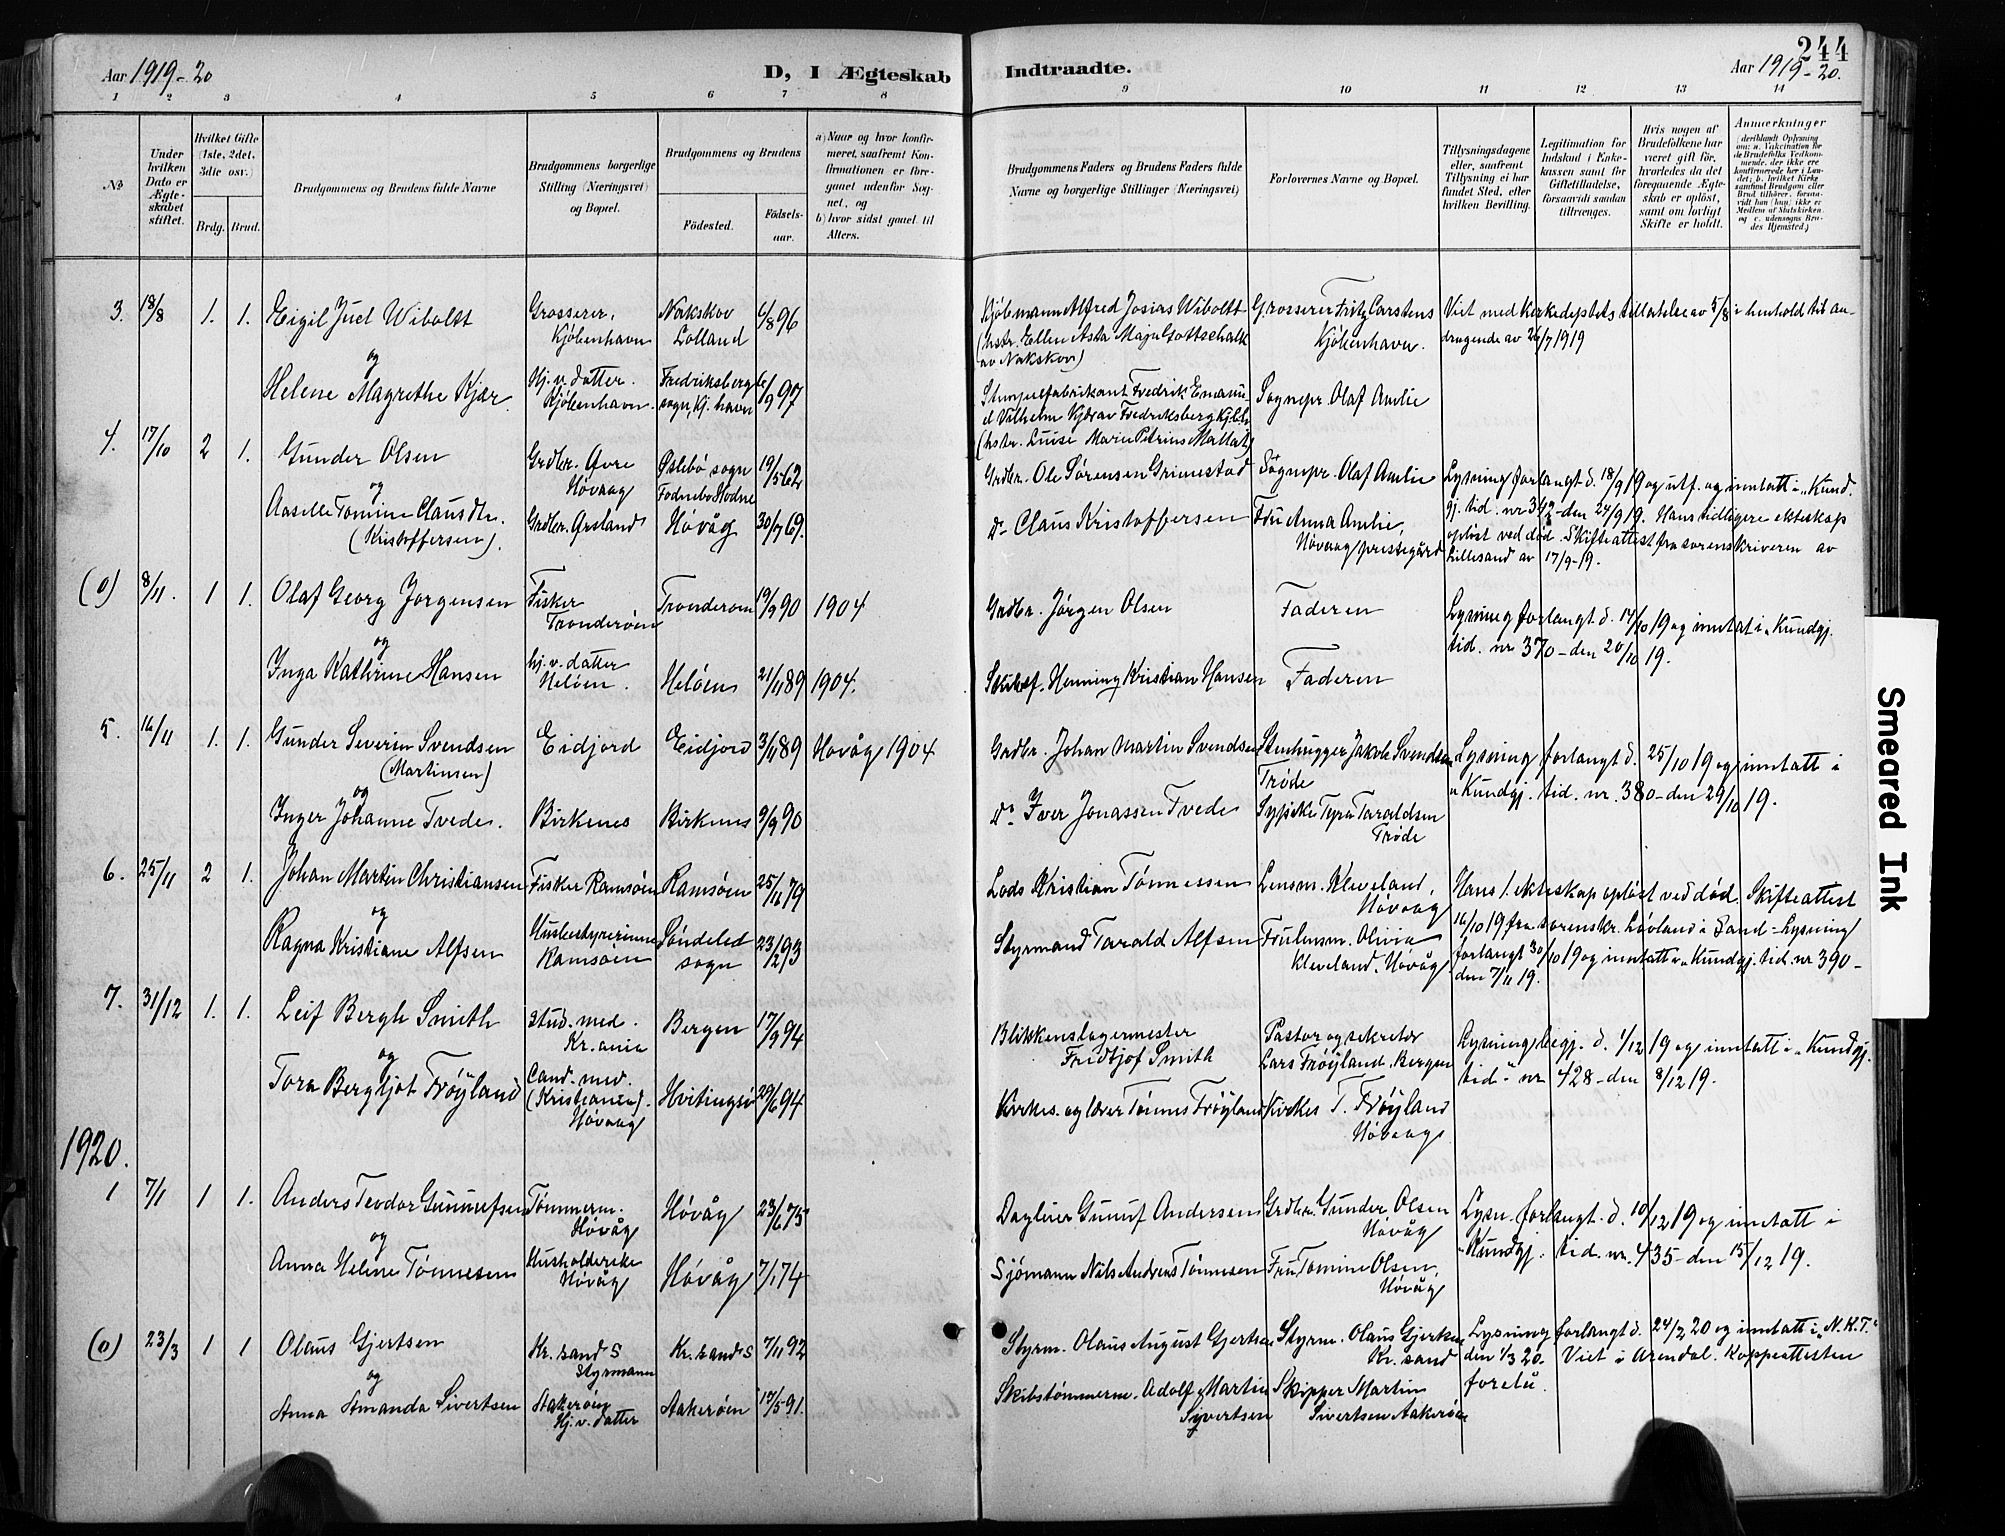 244
Aar 1919-20
D, I Ægteskab Indtraadte.
Aar 1919-20.
1 2 3 4 5 6 7 8 9 10 11 12 13 14
No
Under hvilken Dato er Ægte-skabet stiftet.
Hvilket Gifte (1ste, 2det, 3die osv.)
Brdg. Brud.
Brudgommens og Brudens fulde Navne
Brudgommens borgerlige Stilling (Næringsvei) og Bopæl.
Brudgommens og Brudens
Födested.
Födsels-aar.
a) Naar og hvor konfir-meret, saafremt Kon-firmationen er fore-gaaet udenfor Sog-net, og
b) hvor sidst gaaet til Alters.
Brudgommens Faders og Brudens Faders fulde Navne og borgerlige Stillinger (Næringsvei)
Forlovernes Navne og Bopæl.
Tillysningsdagene eller, saafremt Tillysning ei har fundet Sted, efter hvilken Bevilling.
Legitimation for Indskud i Enke-kassen samt for Giftetilladelse, forsaavidt saadan tiltrænges.
Hvis nogen af Brudefolkene har været gift för, hvorledes da det foregaaende Ægte-skab er oplöst, samt om lovligt Skifte er holdt.
Anmærkninger
3. 18/8 1. 1. Eigil Juel Wiboltt
Grosserer, Kjøbenhavn
Nakskov Lolland 6/8 96
Kjøbmann Alfred Josias Wiboltt
(hstr. Ellen Asta Maja Gottschalk
av Nakskov)
Grosserer Fritz Carstens
Kjøbenhavn.
Viet med Kirkedeptets tillatelse av 5/8 i henhold til an-
dragende av 26/7 1919
og
Helene Magrethe Kjær.
Hj. v. datter. Kjøbenhavn.
Fredriksberg sogn, Kj.havn 6/9 97
Stempelfabrikant Fredrik Emanu-
el Vilhelm Kjær av Fredriksberg Kjbh.
Sognepr. Olaf Amlie
4. 17/10 2 1. Gunder Olsen
Grdbr. Øvre Høvaag
Øslebø sogn 19/5 62
Grdbr. Ole Sørensen Grimestad
Sognepr. Olaf Amlie
Lysning forlangt d. 18/9 19 og utf. og inntatt i "Kund.
gj. tid. nr 342 - den 24/9 19. Hans tidligere ekteskap
opløst ved død. Skifteattest fra sorenskriveren av
Lillesand av 17/9-19.
og
Aaselle Tomine Clausdtr.
(Kristoffersen).
Høvåg 30/7 69.
Do Claus Kristoffersen
Fru Anna Amlie,
Høvaag prestegård
(0) 8/11. 1 1. Olaf Georg Jørgensen
Fisker Trønderøen
Trønderøen 19/9 90 1904
Grdbr. Jørgen Olsen
Faderen
Lysning forlangt d. 14/10 19 og inntat i "Kundgj.
tid. nr 370 - den 20/10 19.
og
Inga Kathrine Hansen
hj. v. datter Heløen.
Heløen 21/11 89 1904.
Henning Kristian Hansen
Faderen
5. 16/11 1. 1. Gunder Severin Svendsen
(Martinsen)
Eidjord Eidjord 3/11 89 Høvåg 1904
Grdbr. Johan Martin Svendsen
Stenhugger Jakob Svendsen
Trøde
Lysning forlangt d. 25/10 19 og inntatt i
"Kundgj. tid. nr. 380 - den 29/10 19.
og
Inger Johanne Tvede.
Birkenes Birkenes 9/9 90
Do Iver Jonassen Tvede
Sypike Tyra Taraldsen
Trøde
6. 25/11 2 1. Johan Martin Christiansen
Fisker Ramsøen Ramsøen 25/11 79
Lods Kristian Tønnessen
Lensm. Kleveland,
Høvaag
Hans 1. ekteskap opløst ved død. Skifteattest
16/10 19 fra sorenskr. Løvland i Sand - Lysning
forlangt 30/10 19 og inntatt i "Kundgj. tid. nr 390 -
den 7/11 19.
og
Ragna Kristiane Alfsen
Husbestyrerinne Ramsøen
Søndeled sogn 23/12 93
Styrmand Tarald Alfsen
Fru lensm. Olivia
Kleveland, Høvåg
7. 31/12 1. 1. Leif Bergh Smith
stud. med. Kr.ania
Bergen 17/9 94
Blikkenslagermester
Fridtjof Smith
Pastor og sekretær
Lars Frøyland, Bergen
Lysning begj. d. 1/12 19 og inntatt i "Kundgj.
tid." nr 428 - den 8/12 19.
og
Tora Bergljot Frøyland
Cand. med. (Kristiania). Høvaag
Hvitingsø 29/6 94
Kirkes. og lærer Tønnes Frøyland
Kirkes T. Frøyland
Høvaag
1920.
1 7/1 1 1. Anders Teodor Gunnufsen
Tømmerm. Høvåg
Høvåg 23/6 75
Dagleier Gunuf Andersen
Grdbr. Gunder Olsen
Høvåg
Lysn. forlangt d. 10/12 19 og inntatt i
"Kundgj. tid. nr. 435 - den 15/12 19.
og
Anna Helene Tønnesen
Husholderske Høvåg
Høvåg 7/1 74
Sjømann Nils Andreas Tønnesen
Fru Tomine Olsen,
Høvåg
(0) 23/3 1 1 Olaus Gjertsen
Kr.sand S Styrmann
Kr.sand S 7/11 92
Styrm. Olaus August Gjertsen
Styrm. Olaus Gjertsen
Kr.sand
Lysning forlangt d. 24/2 20 og inntatt i "N.K.T."
den 1/3 20. Viet i Arendal. Koppeattesten
foretu.
og
Anna Amanda Sivertsen
Aakerøen Hj. v. datter
Aakerøen 17/5 91.
Skibstømmerm. Adolf Martin
Syvertsen
Skipper Martin
Sivertsen Aakerøen
Smeared Ink